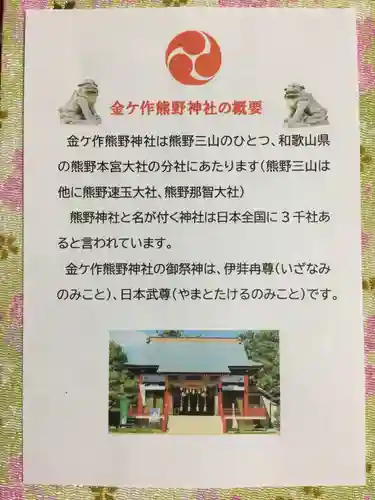 金ケ作熊野神社の概要
金ケ作熊野神社は熊野三山のひとつ、和歌山県
の熊野本宮大社の分社にあたります(熊野三山は
他に熊野速玉大社、熊野那智大社)
熊野神社と名が付く神社は日本全国に3千社あ
ると言われています。
金ケ作熊野神社の御祭神は、伊弉冉尊(いざなみ
のみこと)、日本武尊(やまとたけるのみこと)です。